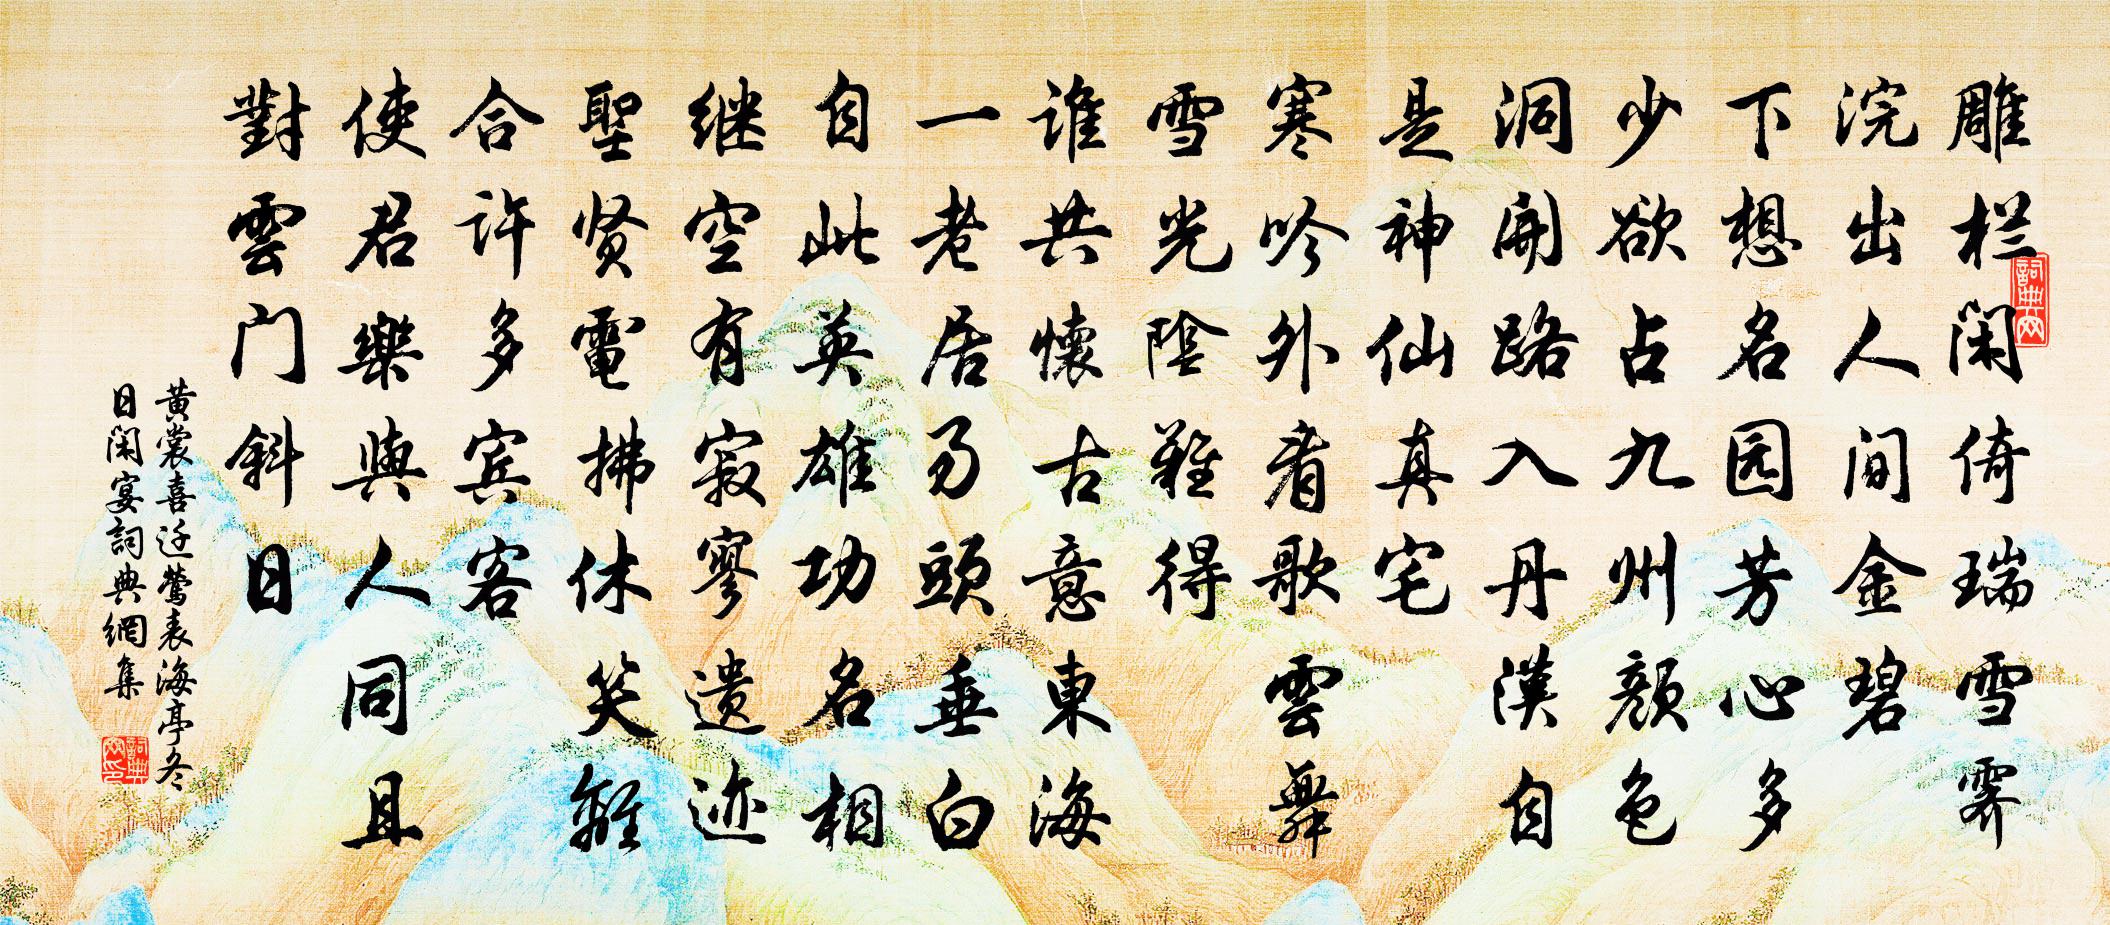 雕栏闲倚瑞雪霁
浣出人间金碧
下想名园芳心多
少欲占九州颜色
洞开路入丹漢自
是神仙真宅
寒吟外看歌雲舞
雪光陰難得
谁共懷古意東海
一老居易頭垂白
自此英雄功名相
继空有寂寥遗迹
聖贤電拂休笑難
合许多宾客
使君樂與人同且
對雲门斜日
黄裳喜迁莺表海亭冬
日闲宴詞典網集
詞典网
詞典网印